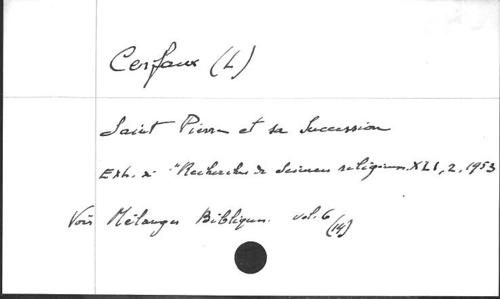 Cerfaux (L)
Saint Pierre et sa Succession
Extr. de "Recherches de Sciences religieuses XLI, 2, 1953
Voir Mélanges Bibliques. vol. 6
(14)